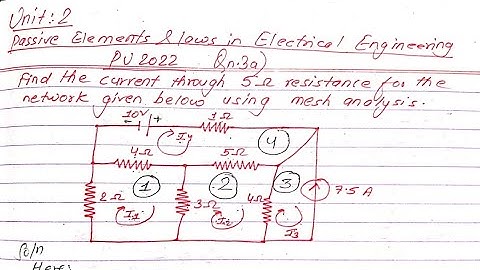 Unit: 2
Passive Elements & laws in Electrical Engineering
PU 2022 Qn.3a)
Find the current through 5Ω resistance for the
network given below using mesh analysis.
10V 1Ω
- +
I4 4
4Ω 5Ω
1 2 3 7.5 A
2Ω I1 3Ω I2 4Ω I3
Sol/n
Here: